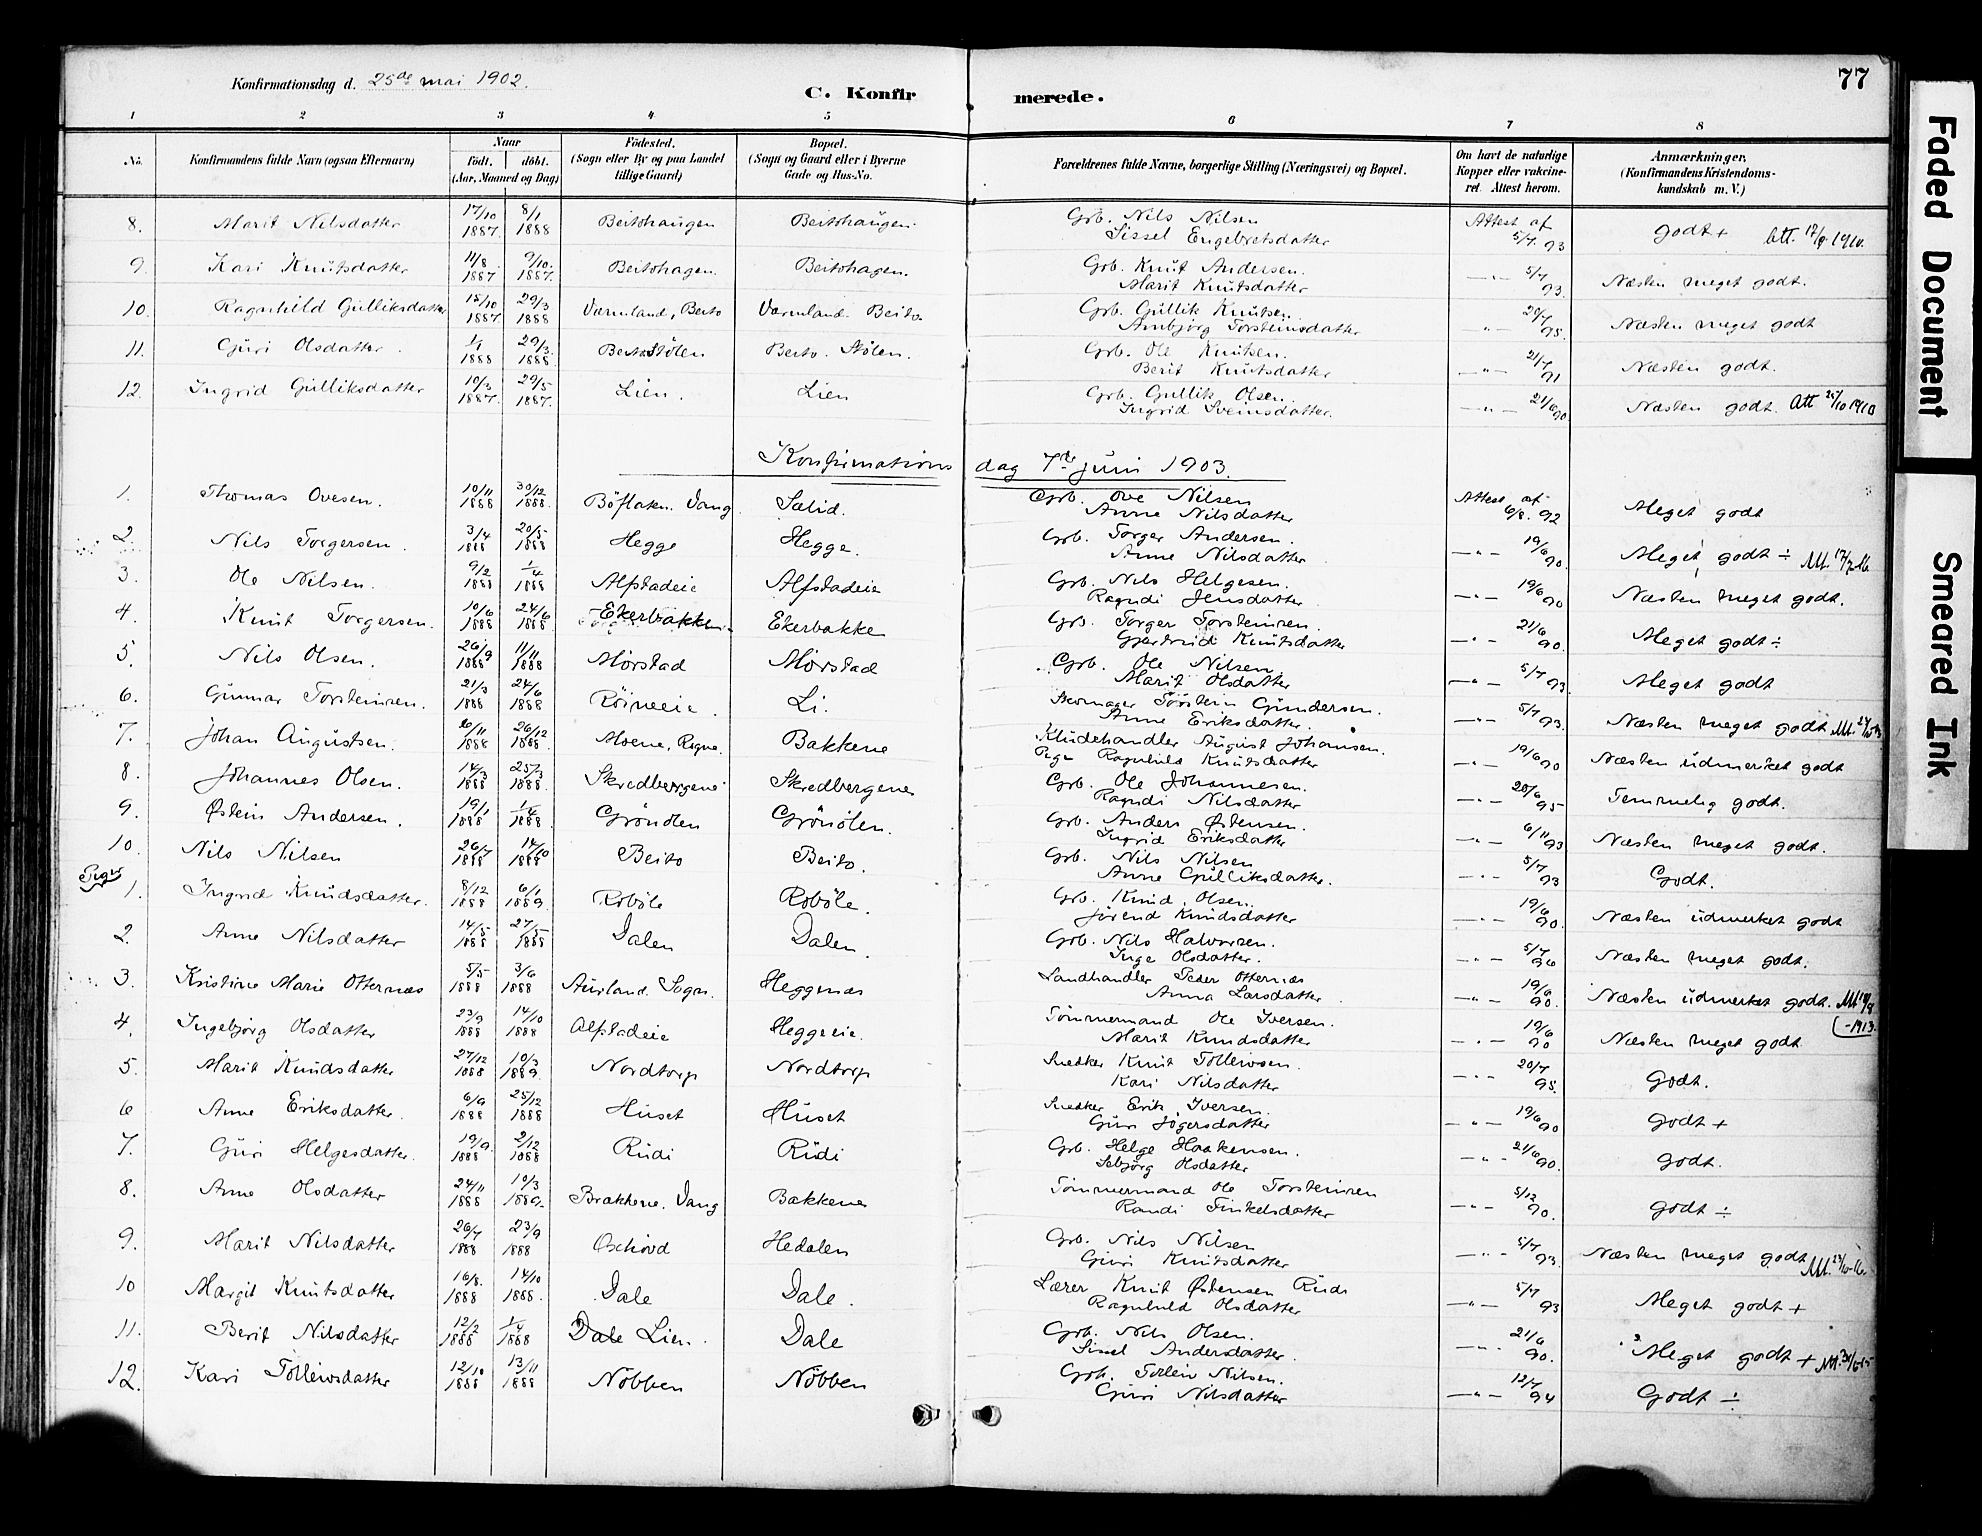 77
Konfirmationsdag d. 25de mai 1902.
C. Konfirmerede.
1 2 3 4 5 6 7 8
No. Konfirmandens fulde Navn (ogsaa Efternavn) Naar født. døbt. (Aar, Maaned og Dag) Fødested. (Sogn eller By og paa Landet tillige Gaard) Bopæl. (Sogn og Gaard eller i Byerne Gade og Hus-No. Forældrenes fulde Navne, borgerlige Stilling (Næringsvei) og Bopæl. Om havt de naturlige Kopper eller vakcineret. Attest herom. Anmærkninger. (Konfirmandens Kristendomskundskab m. V.)
8. Marit Nilsdatter 17/10 1887 8/1 1888 Beitohaugen Beitohaugen. Grb. Nils Nilsen Sissel Engebretsdatter Attest af 5/7. 93 godt +
9. Kari Knutsdatter 11/8 1887 9/10 1887. Beitohagen. Beitohagen. Grb. Knut Andersen. Marit Knutsdatter 5/7 93. Næsten meget godt.
10. Ragnhild Gulliksdatter 15/10 1887 29/3 1888 Varmland, Beito Varmland. Beito. Grb. Gullik Knutsen. Ambjørg Torsteinsdatter 20/7 95. Næsten meget godt
11. Guri Olsdatter 1/1 1888 29/3 1888 Beito Stölen Beito. Stölen. Grb. Ole Knutsen. Berit Knutsdatter 21/7 91 Næsten godt.
12. Ingrid Gulliksdatter 10/3 1887. 29/5 1887. Lien. Lien Grb. Gullik Olsen. Ingrid Sveinsdatter. 21/6 90. Næsten godt. Att 25/10 1910
Konfirmationsdag 7de juni 1903.
1. Thomas Ovesen. 10/11 1888 30/12 1888. Böflaten. Vang Sælid. Grb. Ove Nilsen Anne Nilsdatter Attest af 6/8. 92 Meget godt
2. Nils Torgersen. 3/4 1888 20/5 1888 Hegge Hegge. Grb. Torger Andersen. Anne Nilsdatter 19/6 90. Meget godt ÷
3. Ole Nilsen. 9/2 1888 1/4 1888 Alfstadeie Alfstadeie Grb. Nils Helgesen. Ragndi Jensdatter 19/6 90 Næsten meget godt.
4. Knut Torgersen. 10/6 1888 24/6 1888 Ekerbakken Ekerbakke Grb. Torger Torsteinsen. Gjertrud Knutsdatter 21/6 90. Meget godt ÷
5. Nils Olsen. 26/9 1888 11/11 1888 Mörstad Mörstad Grb. Ole Nilsen Marit Olsdatter 5/7 93. Meget godt
6. Gunnar Torsteinsen. 21/3 1888 24/6 1888 Röineeie. Li. Skomager Torstein Gundersen. Anne Eriksdatter. 5/7 93. Næsten meget godt
7. Johan Augustsen. 6/11 1888 26/12 1888. Moene, Rogne. Bakkene Kludehandler August Johansen. Pige Ragnhild Knutsdatter 19/6 90 Næsten udmerket godt
8. Johannes Olsen. 14/3 1888 25/3 1888. Skredbergene Skredbergene Grb. Ole Johannesen. Ragndi Nilsdatter 20/6 95 Temmelig godt.
9. Østein Andersen. 19/1 1888 1/4 1888. Grönolen Grönolen. Grb. Anders Østensen. Ingrid Eriksdatter 6/11 93 Næsten meget godt.
10. Nils Nilsen 26/7 1888 14/10 1888 Beito Beito. Grb. Nils Nilsen Anne Gulliksdatter. 5/7 93 Godt.
Piger
1. Ingrid Knudsdatter. 8/12 1888 6/1 1889. Roböle Roböle. Grb. Knud Olsen. Jörend Knudsdatter 19/6 90. Næsten udmerket godt
2. Anne Nilsdatter 14/5 1888 27/5 1888 Dalen Dalen Grb. Nils Halvorsen. Inge Olsdatter. 5/7 96 Næsten meget godt.
3. Kristine Marie Otternæs 5/5 1888 3/6 1888 Aurland. Sogn. Heggenæs Landhandler Peder Otternæs Anna Larsdatter 19/6 90. Næsten udmerket godt. -1913.
4. Ingebjörg Olsdatter 23/9 1888 14/10 1888 Alfstadeie Heggeeie. Tömmermand Ole Iversen. Marit Knudsdatter 19/6 90 Næsten meget godt.
5. Marit Knudsdatter 27/12 1888 10/3 1889. Nordtorp Nordtorp Snedker Knut Tollewsen. Kari Nilsdatter 20/7 95. Godt.
6 Anne Eriksdatter. 6/9 1888 25/12 1888 Huset Huset Snedker Erik Iversen. Guri Jögersdatter 19/6 90 Godt +
7. Guri Helgesdatter. 19/9. 1888 2/12 1888 Rudi Rudi Grb. Helge Haakensen. Sebjörg Olsdatter 21/6 90. Godt.
8. Anne Olsdatter 24/11 1888 10/3 1889. Brækkene. Vang Bakkene Tömmermand Ole Torsteinsen Randi Finkelsdatter 5/12 90. Godt ÷
9. Marit Nilsdatter 26/7 1888 23/9 1888 Hedalen Grb. Nils Nilsen Guri Knutsdatter 5/7 93. Næsten meget godt
10 Margit Knutsdatter 16/8. 1888 14/10 1888. Dale Dale. Lærer Knut Østensen Rudi Ragnhild Olsdatter 5/7 93 Meget godt +
11. Berit Nilsdatter 12/2 1888 1/4 1888 Dale Lien. Dale Grb. Nils Olsen. Sissel Andersdatter. 21/6 90. Meget godt +
12. Kari Tollewsdatter 12/10 1888 13/11 1888 Nöbben Nöbben Grb. Tollew Nilsen. Guri Nilsdatter 12/7 94 Godt ÷
Faded Document
Smeared Ink